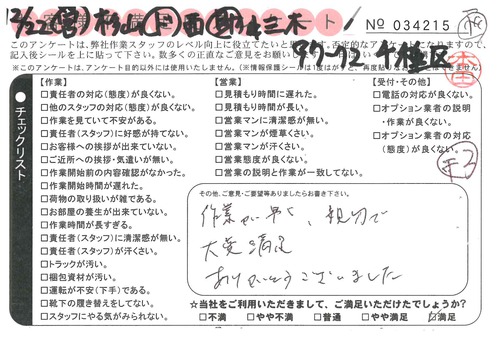 12/22 杉山 西 三木
ト
No 034215
97-12 千種区
このアンケートは、弊社作業スタッフのレベル向上に役立てたいと
記入後シールを上に貼って下さい。数多くの正直なご意見をお願い
※このアンケートは、アンケート目的以外には使用いたしません。(※情報保護シールは1度はがすと、再度貼り
チェックリスト
【作業】
□責任者の対応(態度)が良くない。
□他のスタッフの対応(態度)が良くない。
□作業を見ていて不安がある。
□責任者(スタッフ)に好感が持てない。
□お客様への挨拶が出来ていない。
□ご近所への挨拶・気遣いが無い。
□作業開始前の内容確認がなかった。
□作業開始時間が遅れた。
□荷物の取り扱いが雑である。
□お部屋の養生が出来ていない。
□作業時間が長すぎる。
□責任者(スタッフ)に清潔感が無い。
□責任者(スタッフ)が汗くさい。
□トラックが汚い。
□梱包資材が汚い。
□運転が不安(下手)である。
□靴下の履き替えをしてない。
□スタッフにやる気がみられない。
【営業】
□見積もり時間に遅れた。
□見積もり時間が長い。
□営業マンに清潔感が無い。
□営業マンが煙草くさい。
□営業マンが汗くさい。
□営業態度が良くない。
□営業の説明と作業が一致してない。
【受付・その他】
□電話の対応が良くない。
□オプション業者の説明
・作業が良くない。
□オプション業者の対応
(態度)が良くない。
その他、ご意見・ご要望等ありましたらお書き下さい。
作業が早く、親切で
大変満足
ありがとうございました
☆当社をご利用いただきまして、ご満足いただけてでしょうか?
□不満 □やや不満 □普通 □やや満足 ☑満足